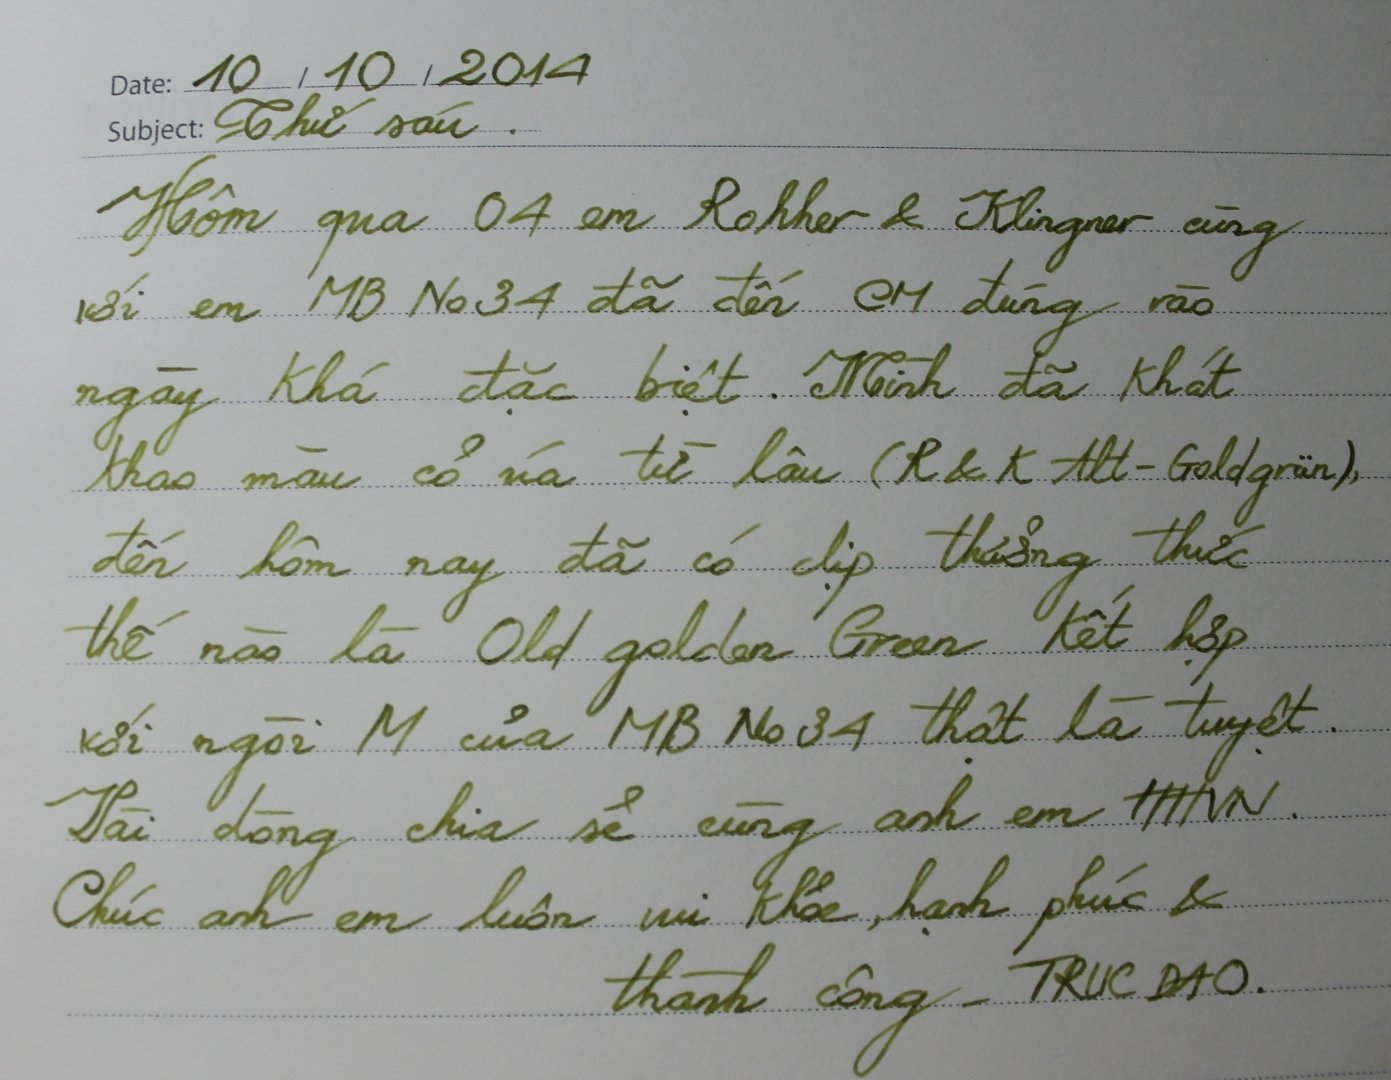 Date: 10 / 10 / 2014
Subject: Thứ sáu .
Hôm qua 04 em Rohher & Klingner cùng
với em MB No 34 đã đến CM đúng vào
ngày khá đặc biệt. Mình đã khát
khao màu cỏ úa từ lâu (R & K Alt-Goldgrün),
đến hôm nay đã có dịp thưởng thức
thế nào là Old golden Green kết hợp
với ngòi M của MB No 34 thật là tuyệt.
Vài dòng chia sẻ cùng anh em HHVN.
Chúc anh em luôn vui khỏe, hạnh phúc &
thành công - TRUC DAO.